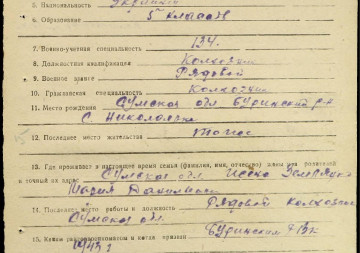 5. Национальность Украинец
6. Образование 5 классов
7. Военно-учетная специальность 134.
8. Должностная квалификация Колхозник
9. Военное звание Рядовой
10. Гражданская специальность Колхозник
11. Место рождения Сумская обл Буринский р-н
с. Николаевка
12. Последнее место жительства
13. Где проживает в настоящее время семья (фамилия, имя, отчество) жены или родителей
и точный их адрес Сумская обл
Мария
14. Последнее место работы и должность Рядовой колхозник
Сумская обл.
15. Каким райвоенкоматом и когда призван Буринским РВК
1943 г